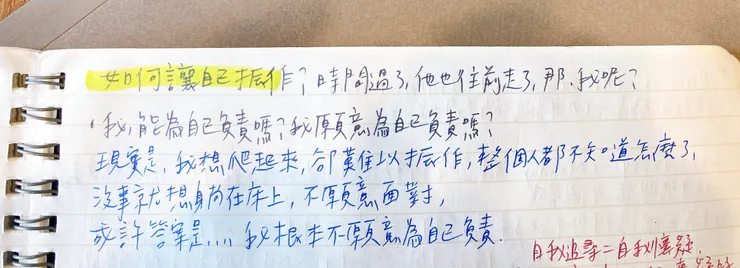 如何讓自己振作？時間過了，他也往前走了，那，我呢？
・我，能為自己負責嗎？我願意為自己負責嗎？
現實是，我想爬起來，卻難以振作，整個人都不知道怎麼了，
沒事就想躺在床上，不願意面對，
或許答案是....我根本不願意為自己負責.
自我追尋=自我懷疑.